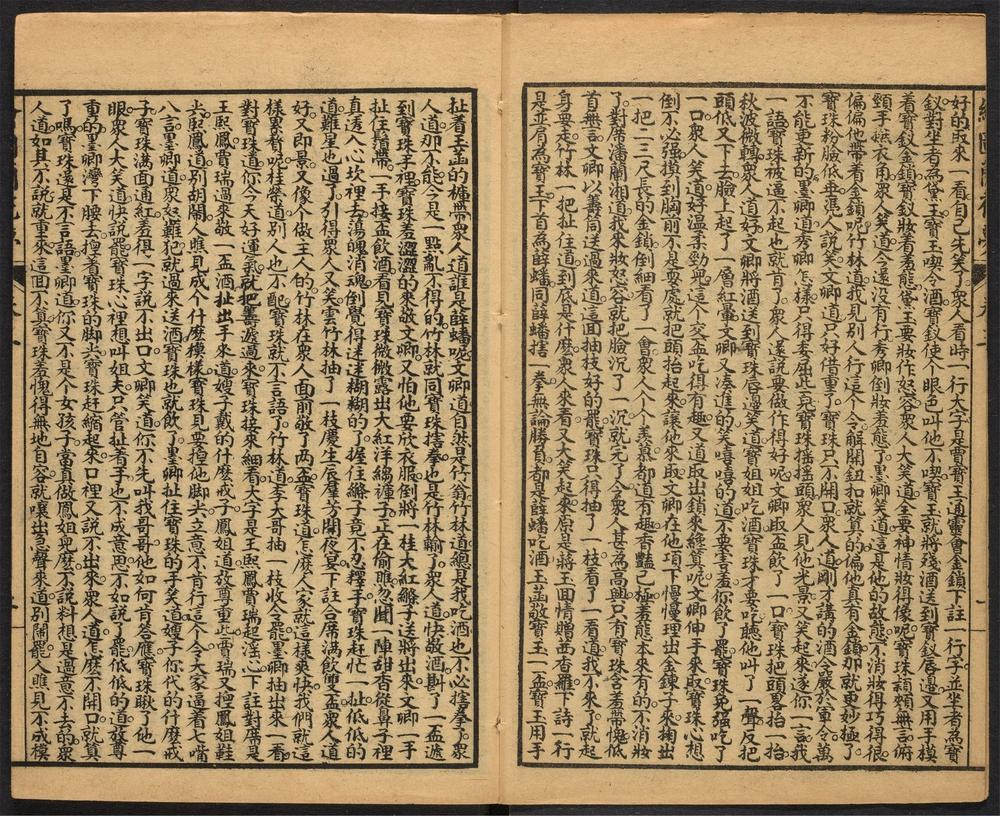 好的取來一看自己先笑了眾人看時一行大字是賈寶玉通靈會金鎖下註一行字並坐者為寶
釵對坐者為黛玉寶玉喫令酒寶釵使個眼色叫他不喫寶玉就將殘酒送到寶釵唇邊又用手模
着寶釵金鎖寶釵妝着羞態黛玉要妝作怒容眾人大笑道全要神情妝得像呢寶珠頳頰無言俯
頸手撚衣用眾人笑道今還沒有行秀卿倒妝羞態了墨卿笑道這是他的故態不消妝得巧得很
偏偏他帶着金鎖呢竹林道我見別人行這個令解開鈕扣就算的偏他真有金鎖那就更妙極了
寶珠粉臉低垂憑人說笑文卿道只好借重了寶珠只不開口眾人道剛才講的酒令嚴於軍令萬
不能更新的墨卿道秀卿怎樣只得要屈此哀寶珠搖搖頭眾人見他光景又笑起來遂你一言我
一語寶珠被逼不起也就首肯了眾人還說要做作得好呢文卿取盃飲了一口寶珠把頭畧抬一抬
秋波微轉眾人道好文卿將酒送到寶珠唇邊笑道寶姐姐吃酒寶珠才要吃聽他叫了一聲反把
頭低又下去臉上起了一層紅暈文卿又湊進的笑嘻嘻的道不要害羞你飲了罷寶珠免强吃了
一口眾人笑道好溫柔勁兒這個交盃吃得有趣又道取出鎖來纔算呢文卿伸手來取寶珠心想
倒不必强摸到胸前不是耍處就把頭抬起來讓他來取文卿在他項下慢慢理出金鍊子來掏出
一把二三尺長的金鎖倒細看了一會眾人个个羨慕都道有趣香豔已極羞態本來有的不消妝
了對席潘蘭湘道我來妝怒容就把臉沉了一沉就完了令眾人甚為高興只有寶珠含羞帶愧低
首無言文卿以籌筒送過來道這面抽枝好的罷寶珠只得抽了一枝看了一看道我不來了就起
身要走竹林一把扯住道到底是什麽眾人來看又大笑起來原是蔣玉函情贈茜香羅下詩一行
是並肩為寶玉下首為薛蟠同薛蟠搳一拳無論勝負都是薛蟠吃酒玉菡敬寶玉一盃寶玉用手
扯着玉菡的褲帶眾人道誰是薛蟠呢文卿道自然是竹翁竹林道總是我吃酒也不必搳拳了眾
人道那不能令是一點亂不得的竹林就同寶珠搳拳也是竹林輸了眾人道快敬酒斟了一盃遞
到寶珠手裡寶珠羞澀澀的來敬文卿又怕他要欣衣服倒將一挂大紅縧子送將出來文卿一手
扯住蓿帶一手接盃飲酒看見寶珠微微露出大紅洋縐褲子正在偷瞧忽聞一陣甜香從鼻子裡
真透入心坎裡去蕩魄消魂倒覺得迷迷糊糊的了握住縧子竟不忍釋手寶珠趕忙一扯低低的
道難星也過了引得眾人又笑雲竹林抽了一枝慶生辰羣芳開夜宴下註合席滿飲雙盃眾人道
好又即景又像個做主人的竹林在眾人面前敬了兩盃寶珠道怎麽人家就這樣爽快我們就這
樣累贅呢桂榮道別人也不配寶珠就不言語了竹林道李大哥抽一枝收令罷墨卿抽出來一看
對寶珠道你今天好運氣就把籌遞過來寶珠接來細看大字是王熙鳳賈瑞起淫心下註對席是
王熙鳳賈瑞過來敬一盃酒扯出手來道嫂子戴的什麽戒子鳳姐道放尊重些賈瑞又揑鳳姐鞋
尖熙鳳道別胡鬧人瞧見成个什麽模樣寶珠見要揑他脚尖立意不肯行這个令大家逼着七嘴
八言墨卿道眾怒難犯就過來送酒寶珠也就飲了墨卿扯住寶珠的手笑道嫂子你代的什麽戒
子寶珠滿面通紅羞得一字說不出口文卿笑道你不先叫我哥哥他如何肯答應寶珠瞅了他一
眼眾人大笑道快說罷寶珠心裡想叫姐夫只管扯着手也不成意思不如說了罷低低的道放尊
重的墨卿灣下腰去揑着寶珠的脚尖寶珠赶縮起來口裡又說不出來眾人道怎麽不開口就算
了嗎寶珠還是不言語墨卿道你又不是个女孩子當真做鳳姐兒麽不說料想是過意不去的眾
人道如其不說就重來這回不算寶珠羞愧得無地自容就嚷出急聲來道別鬧罷人瞧見不成模